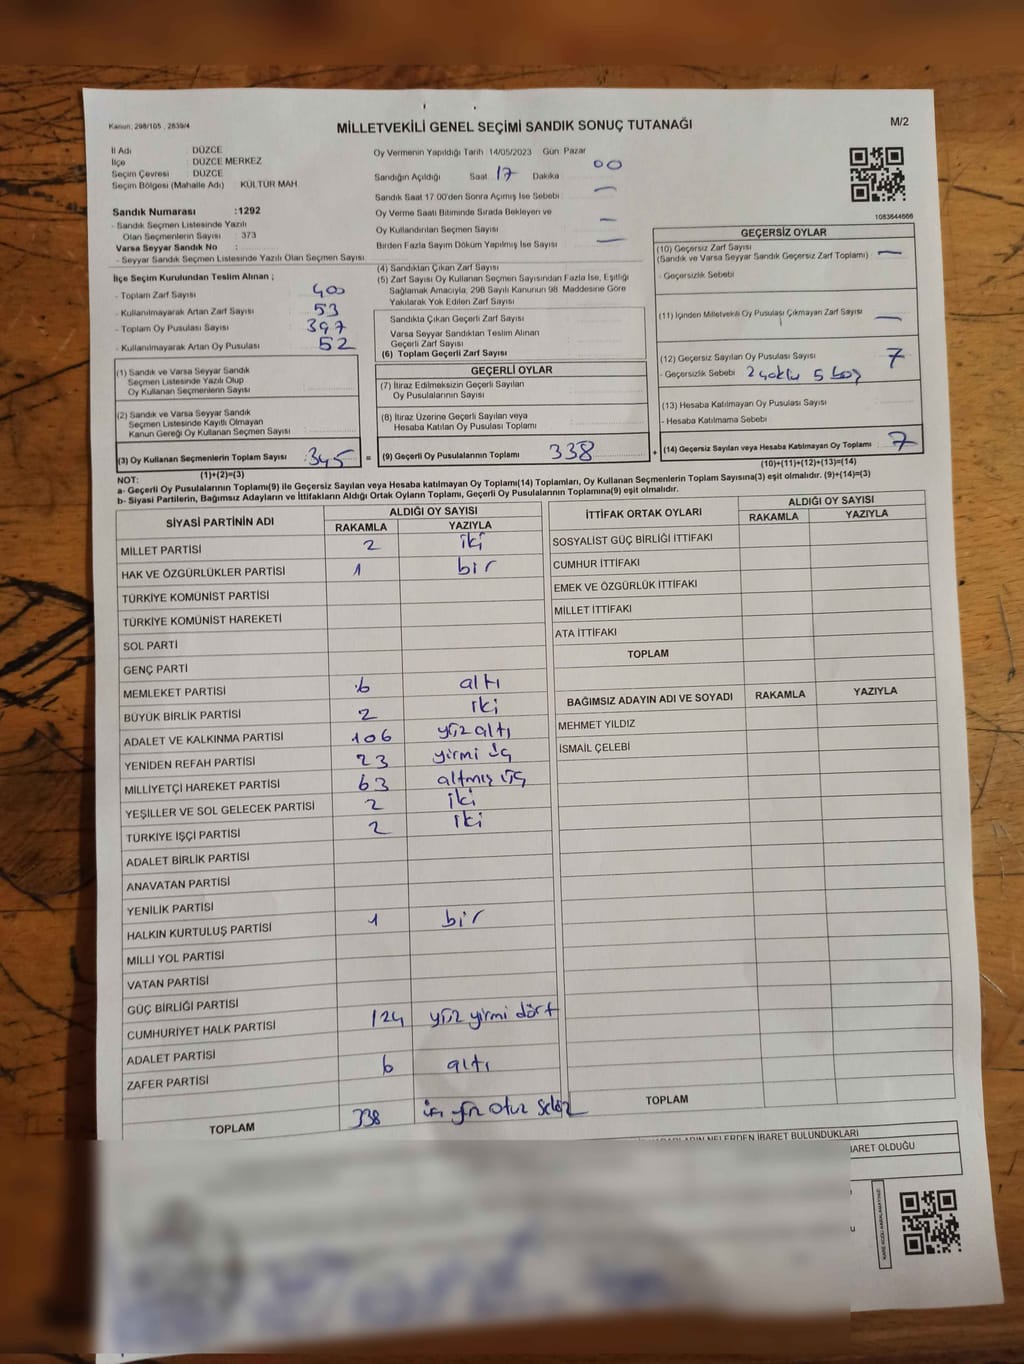 Kanun: 298/105 , 2839/4
MİLLETVEKİLİ GENEL SEÇİMİ SANDIK SONUÇ TUTANAĞI
M/2
İl Adı : DÜZCE
İlçe : DÜZCE MERKEZ
Seçim Çevresi : DÜZCE
Seçim Bölgesi (Mahalle Adı) : KÜLTÜR MAH
Sandık Numarası :1292
- Sandık Seçmen Listesinde Yazılı
Olan Seçmenlerin Sayısı : 373
Varsa Seyyar Sandık No :
- Seyyar Sandık Seçmen Listesinde Yazılı Olan Seçmen Sayısı
Oy Vermenin Yapıldığı Tarih :14/05/2023 Gün: Pazar
Sandığın Açıldığı Saat: 17 Dakika : 00
Sandık Saat 17.00'den Sonra Açımış İse Sebebi : —
Oy Verme Saati Bitiminde Sırada Bekleyen ve
Oy Kullandırılan Seçmen Sayısı : —
Birden Fazla Sayım Döküm Yapılmış İse Sayısı : —
1083644666
İlçe Seçim Kurulundan Teslim Alınan ;
- Toplam Zarf Sayısı : 400
- Kullanılmayarak Artan Zarf Sayısı : 53
- Toplam Oy Pusulası Sayısı : 397
- Kullanılmayarak Artan Oy Pusulası : 52
(1) Sandık ve Varsa Seyyar Sandık
Seçmen Listesinde Yazılı Olup
Oy Kullanan Seçmenlerin Sayısı
(2) Sandık ve Varsa Seyyar Sandık
Seçmen Listesinde Kayıtlı Olmayan
Kanun Gereği Oy Kullanan Seçmen Sayısı
(3) Oy Kullanan Seçmenlerin Toplam Sayısı : 345
(1)+(2)=(3)
(4) Sandıktan Çıkan Zarf Sayısı
(5) Zarf Sayısı Oy Kullanan Seçmen Sayısından Fazla İse, Eşitliği
Sağlamak Amacıyla, 298 Sayılı Kanunun 98. Maddesine Göre
Yakılarak Yok Edilen Zarf Sayısı
Sandıkta Çıkan Geçerli Zarf Sayısı
Varsa Seyyar Sandıktan Teslim Alınan
Geçerli Zarf Sayısı
(6) Toplam Geçerli Zarf Sayısı
GEÇERLİ OYLAR
(7) İtiraz Edilmeksizin Geçerli Sayılan
Oy Pusulalarının Sayısı
(8) İtiraz Üzerine Geçerli Sayılan veya
Hesaba Katılan Oy Pusulası Toplamı
= (9) Geçerli Oy Pusulalarının Toplamı : 338
GEÇERSİZ OYLAR
(10) Geçersiz Zarf Sayısı
(Sandık ve Varsa Seyyar Sandık Geçersiz Zarf Toplamı) : —
- Geçersizlik Sebebi
(11) İçinden Milletvekili Oy Pusulası Çıkmayan Zarf Sayısı : —
(12) Geçersiz Sayılan Oy Pusulası Sayısı : 7
- Geçersizlik Sebebi : 2 çoklu 5 boş
(13) Hesaba Katılmayan Oy Pusulası Sayısı
- Hesaba Katılmama Sebebi :
+ (14) Geçersiz Sayılan veya Hesaba Katılmayan Oy Toplamı : 7
(10)+(11)+(12)+(13)=(14)
NOT:
a- Geçerli Oy Pusulaları Toplamı(9) ile Geçersiz Sayılan veya Hesaba katılmayan Oy Toplamı(14) Toplamları, Oy Kullanan Seçmenlerin Toplam Sayısına(3) eşit olmalıdır. (9)+(14)=(3)
b- Siyasi Partilerin, Bağımsız Adayların ve İttifakların Aldığı Ortak Oyların Toplamı, Geçerli Oy Pusulalarının Toplamına(9) eşit olmalıdır.
SİYASİ PARTİNİN ADI ALDIĞI OY SAYISI
RAKAMLA YAZIYLA
MİLLET PARTİSİ 2 iki
HAK VE ÖZGÜRLÜKLER PARTİSİ 1 bir
TÜRKİYE KOMÜNİST PARTİSİ
TÜRKİYE KOMÜNİST HAREKETİ
SOL PARTİ
GENÇ PARTİ
MEMLEKET PARTİSİ 6 altı
BÜYÜK BİRLİK PARTİSİ 2 iki
ADALET VE KALKINMA PARTİSİ 106 yüz altı
YENİDEN REFAH PARTİSİ 23 yirmi üç
MİLLİYETÇİ HAREKET PARTİSİ 63 altmış üç
YEŞİLLER VE SOL GELECEK PARTİSİ 2 iki
TÜRKİYE İŞÇİ PARTİSİ 2 iki
ADALET BİRLİK PARTİSİ
ANAVATAN PARTİSİ
YENİLİK PARTİSİ
HALKIN KURTULUŞ PARTİSİ 1 bir
MİLLİ YOL PARTİSİ
VATAN PARTİSİ
GÜÇ BİRLİĞİ PARTİSİ
CUMHURİYET HALK PARTİSİ 124 yüz yirmi dört
ADALET PARTİSİ
ZAFER PARTİSİ 6 altı
TOPLAM 338 üç yüz otuz sekiz
İTTİFAK ORTAK OYLARI ALDIĞI OY SAYISI
RAKAMLA YAZIYLA
SOSYALİST GÜÇ BİRLİĞİ İTTİFAKI
CUMHUR İTTİFAKI
EMEK VE ÖZGÜRLÜK İTTİFAKI
MİLLET İTTİFAKI
ATA İTTİFAKI
TOPLAM
BAĞIMSIZ ADAYIN ADI VE SOYADI RAKAMLA YAZIYLA
MEHMET YILDIZ
İSMAİL ÇELEBİ
TOPLAM
NELERDEN İBARET BULUNDUKLARI
OLDUĞU